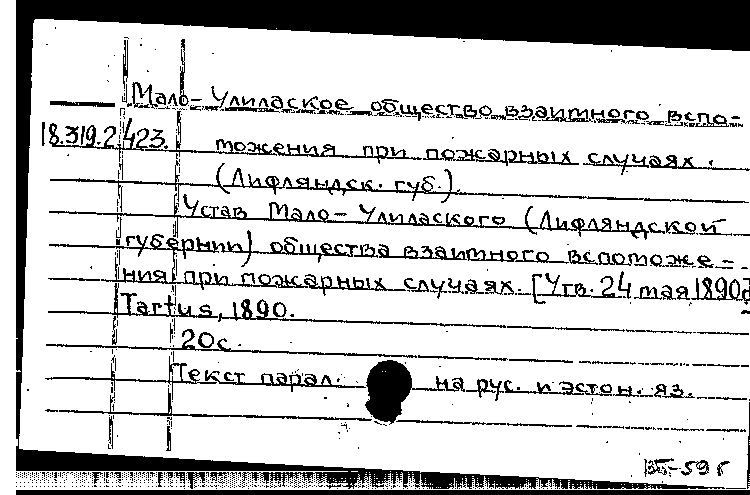 Мало-Улилаское общество взаимного вспо-
18.319.2.423. можения при пожарных случаях.
(Лифляндск. губ.).
Устав Мало-Улилаского (Лифляндской
губернии) общества взаимного вспоможе-
ния при пожарных случаях. [Утв. 24 мая 1890
Tartus, 1890.
20с.
Текст парал. на рус. и эстон. яз.